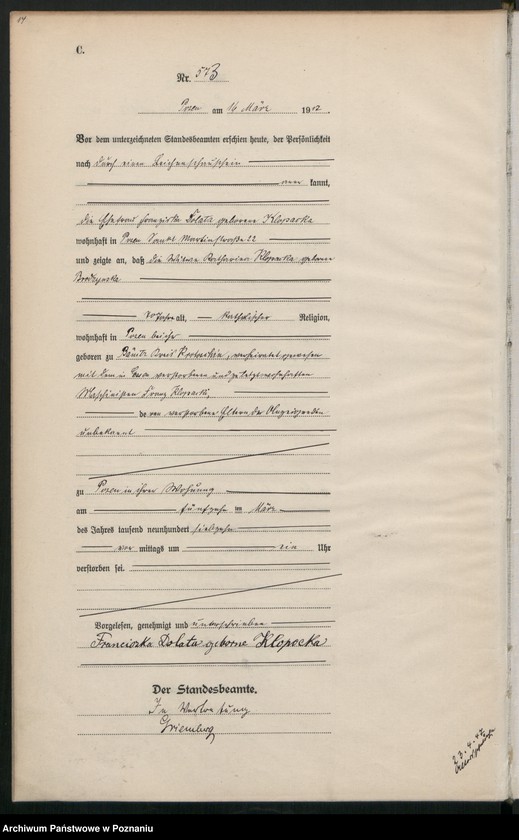 C.
Nr. 573
Posen am 16 März 1912.
Vor dem unterzeichneten Standesbeamten erschien heute, der Persönlichkeit
nach durch einen Leichenschauschein
kannt,
die Ehefrau Franziska Dolata geborene Klopocka
wohnhaft in Posen Sankt Martinstraße 22
und zeigte an, daß die Witwe Katharina Klopocka geborene
alt, katholischer Religion,
wohnhaft in Posen bei ihr
geboren zu Kreis verheiratet gewesen
mit dem in Posen verstorbenen und zuletzt wohnhaften
Maschinisten Franz Klopocki,
deren verstorbene Eltern der Anzeigenden
unbekannt
zu Posen in ihrer Wohnung
am fünfzehn ten März
des Jahres tausend neunhundert
vor mittags um ein Uhr
verstorben sei.
Vorgelesen, genehmigt und unterschrieben
Franciszka Dolata geborne Klopocka
Der Standesbeamte.
In Vertretung
Archiwum Państwowe w Poznaniu